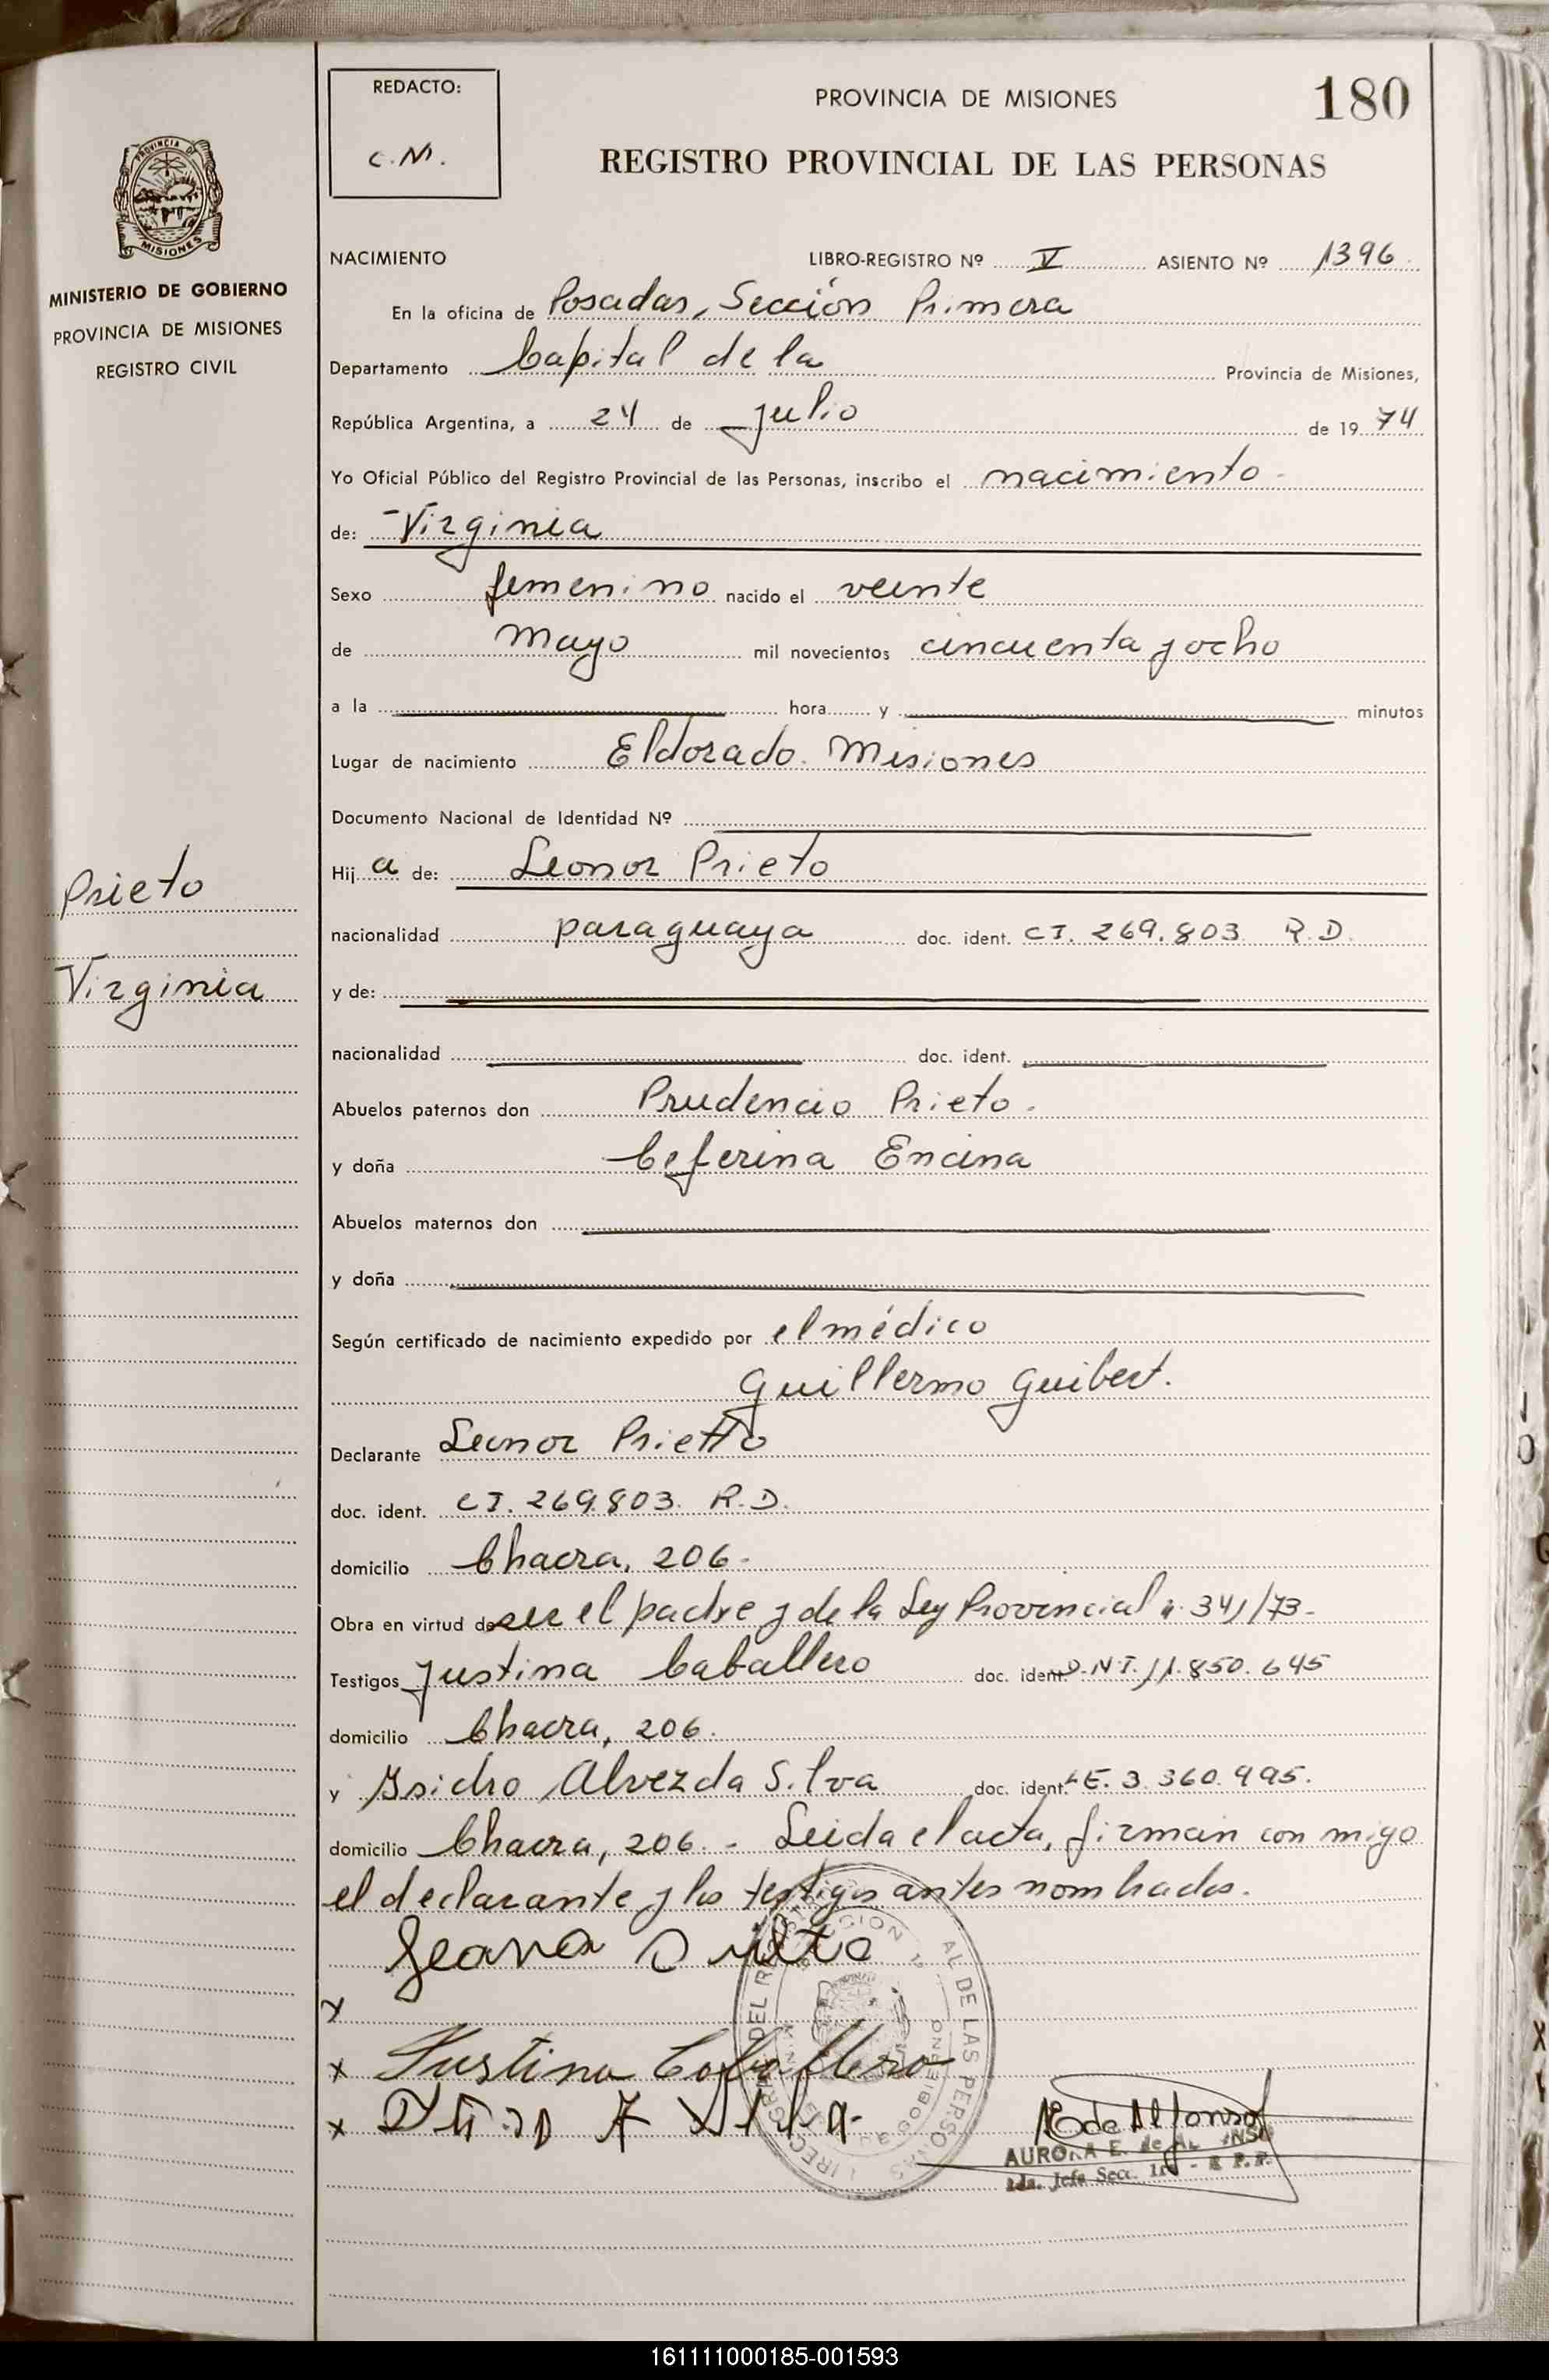 REDACTO:
C.M.
PROVINCIA DE MISIONES
180
REGISTRO PROVINCIAL DE LAS PERSONAS
PROVINCIA DE
MISIONES
MINISTERIO DE GOBIERNO
PROVINCIA DE MISIONES
REGISTRO CIVIL
NACIMIENTO LIBRO-REGISTRO Nº V ASIENTO Nº 1396
En la oficina de Posadas, Sección Primera
Departamento Capital de la Provincia de Misiones,
República Argentina, a 24 de Julio de 1974
Yo Oficial Público del Registro Provincial de las Personas, inscribo el nacimiento -
de: - Virginia
Sexo femenino nacido el veinte
de mayo mil novecientos cincuenta y ocho
a la hora y minutos
Lugar de nacimiento Eldorado. Misiones
Documento Nacional de Identidad Nº
Hij a de: Leonor Prieto
nacionalidad paraguaya doc. ident. CI. 269.803 R.D.
y de:
nacionalidad doc. ident.
Abuelos paternos don Prudencio Prieto.
y doña Ceferina Encina
Abuelos maternos don
y doña
Según certificado de nacimiento expedido por el médico
Guillermo Guibert.
Declarante Leonor Prietto
doc. ident. CI. 269.803. R.D.
domicilio Chacra, 206-
Obra en virtud de ser el padre y de la Ley Provincial n. 341/73-
Testigos Justina Caballero doc. ident. D.N.I. 11.850.645
domicilio Chacra, 206.
y Isidro Alvez da Silva doc. ident. LE. 3.360.995.
domicilio Chacra, 206. - Leida el acta, firman con migo
el declarante y los testigos antes nombrados.
x
x Justina Caballero
x
E de Alfonso
AURORA E. de ALFONSO
2da. Jefe Secc. 1ra - R P. P.
Prieto
Virginia
161111000185-001593